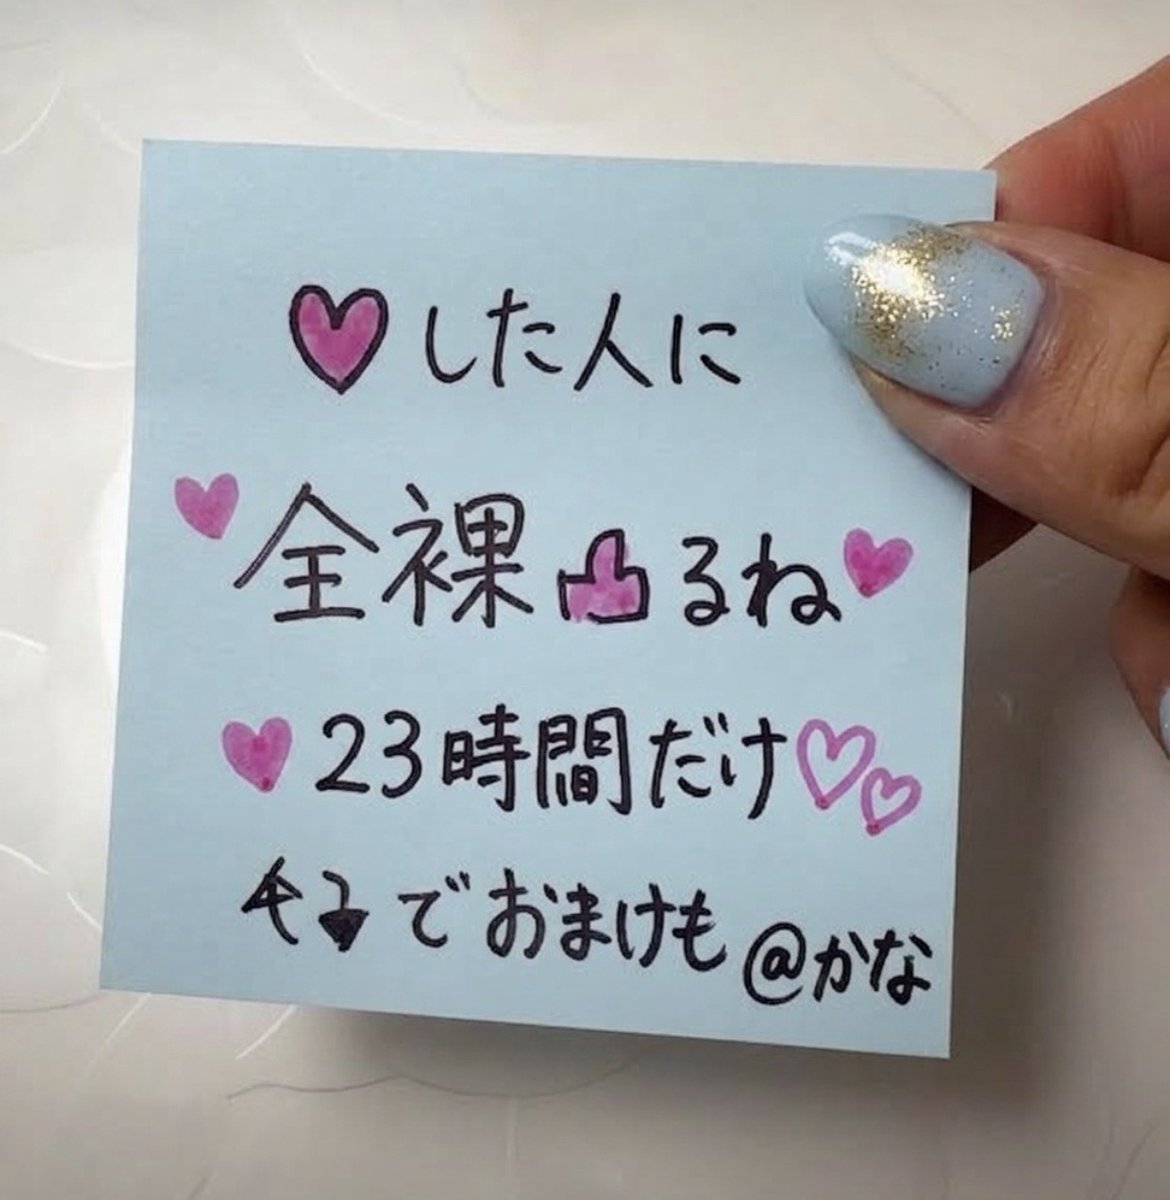 ♥した人に
♥全裸👍るね♥
♥23時間だけ♡♡
でおまけも @かな